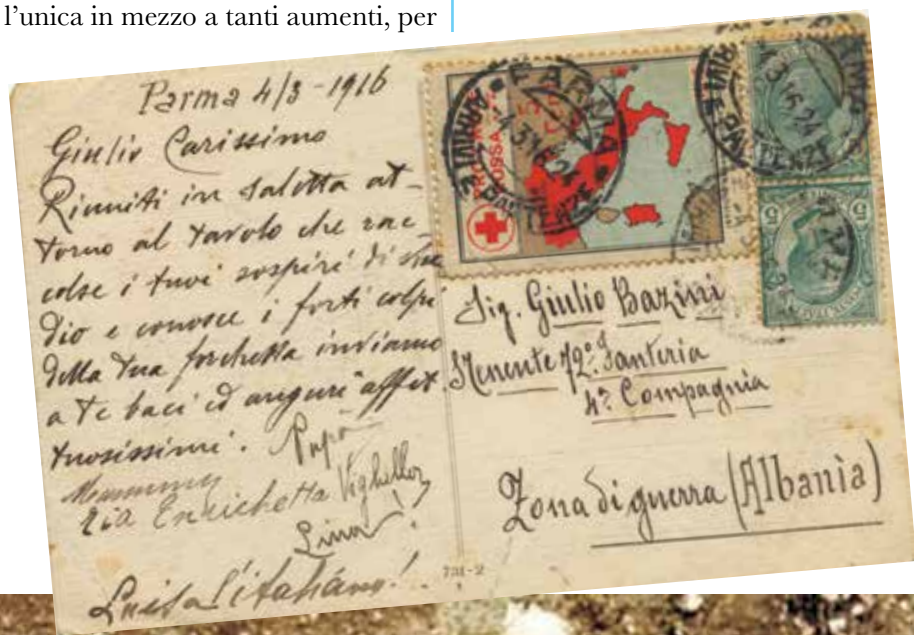 l'unica in mezzo a tanti aumenti, per
Parma 4/3-1916
Giulio Carissimo
Riuniti in salotto at-
torno al tavolo che rac-
colse i tuoi sospiri di stu
dio e conosce i forti colpi
della tua forchetta inviamo
a te baci ed auguri affet
tuosissimi. Papà
Mammina
Zia Enrichetta
Lina!
Luisa
PRO
CROCE ROSSA
PARMA
PARMA
PARTENZE
4.3.16.24
Sig. Giulio Bazini
STenente 72º Fanteria
4ª Compagnia
Zona di guerra (Albania)
731-2